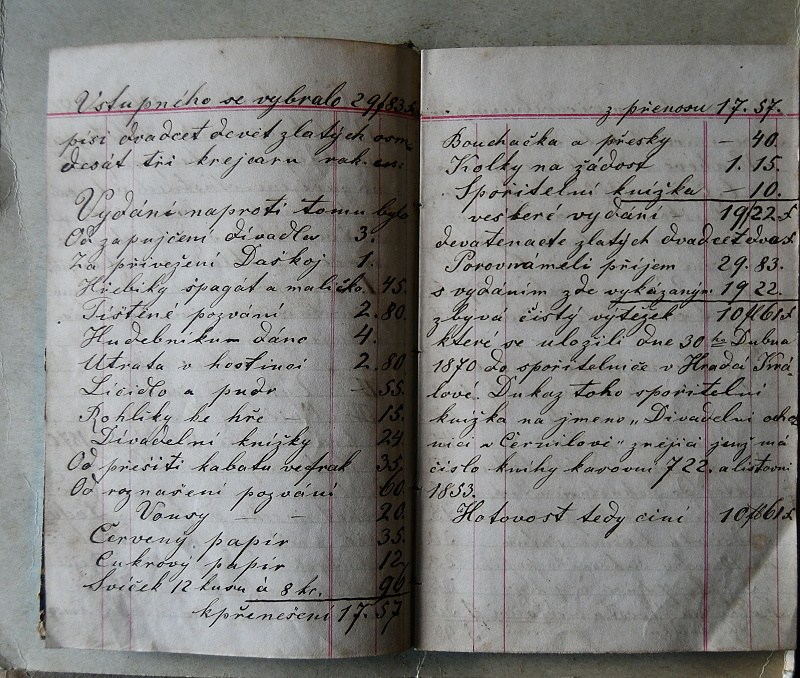 Vstupného se vybralo 29 f 83 x
písi dvadcet devět zlatých osm-
desát tři krejcaru rak. čís:
Vydání naproti tomu bylo
Od zapujčení divadla 3.
Za přivežení Daskoj 1.
Hřebíky špagát a maličko. 45.
Tištěné pozvání 2. 80.
Hudebníkum dáno 4.
Utrata v hostinci 2. 80
Líčidlo a pudr – 55.
Rohlíky ke hře – 15.
Divadelní knížky 24.
Od přešití kabatu ve frak 35.
Od roznašení pozvání 60.
Vousy – – 20.
Červený papír 35.
Cukrový papír 12
Svíček 12 kusu à 8 kr. 96
k přenešení 17. 57
z přenosu 17. 57.
Bouchačka a přesky – 40.
Kolky na žádost 1. 15.
Spořitelní knížka – 10.
veškeré vydání – 19/22. x
devatenacte zlatých dvadcet dva x
Porovnámeli příjem 29. 83.
s vydáním zde vykázaným 19 22.
zbyvá čistý výtěžek 10 f 61 x
které se uložili dne 30 ho Dubna
1870 do spořitelnice v Hradci Krá-
lové. Dukaz toho spořitelní
knížka na jmeno „Divadelní och-
níci v Černilově" znějící jenž má
číslo knihy kasovní 722. a listovní
1853.
Hotovost tedy činí 10 f 61 x